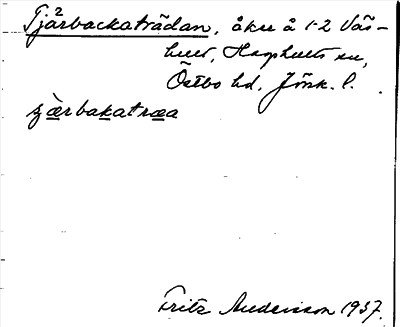 Tjärbackaträdan, åker å 1-2 Väs-
hult, Hagshults sn,
Östbo hd. Jönk. l.
Fritz Andersson 1937.